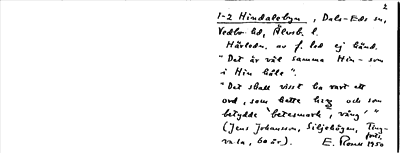 2
1-2 Hindalebyn, Dals-Eds sn,
Vedbo hd, Älvsb. l.
Härledn. av f. led ej känd.
"Det är väl samma Hin- som
i Hin håle".
"Det skall visst ha varit ett
ord, som hette och som
betydde 'betesmark, väng'"
(Jens Johansson, Siljebögen, Ting-
valla, 60 år). E. 1950